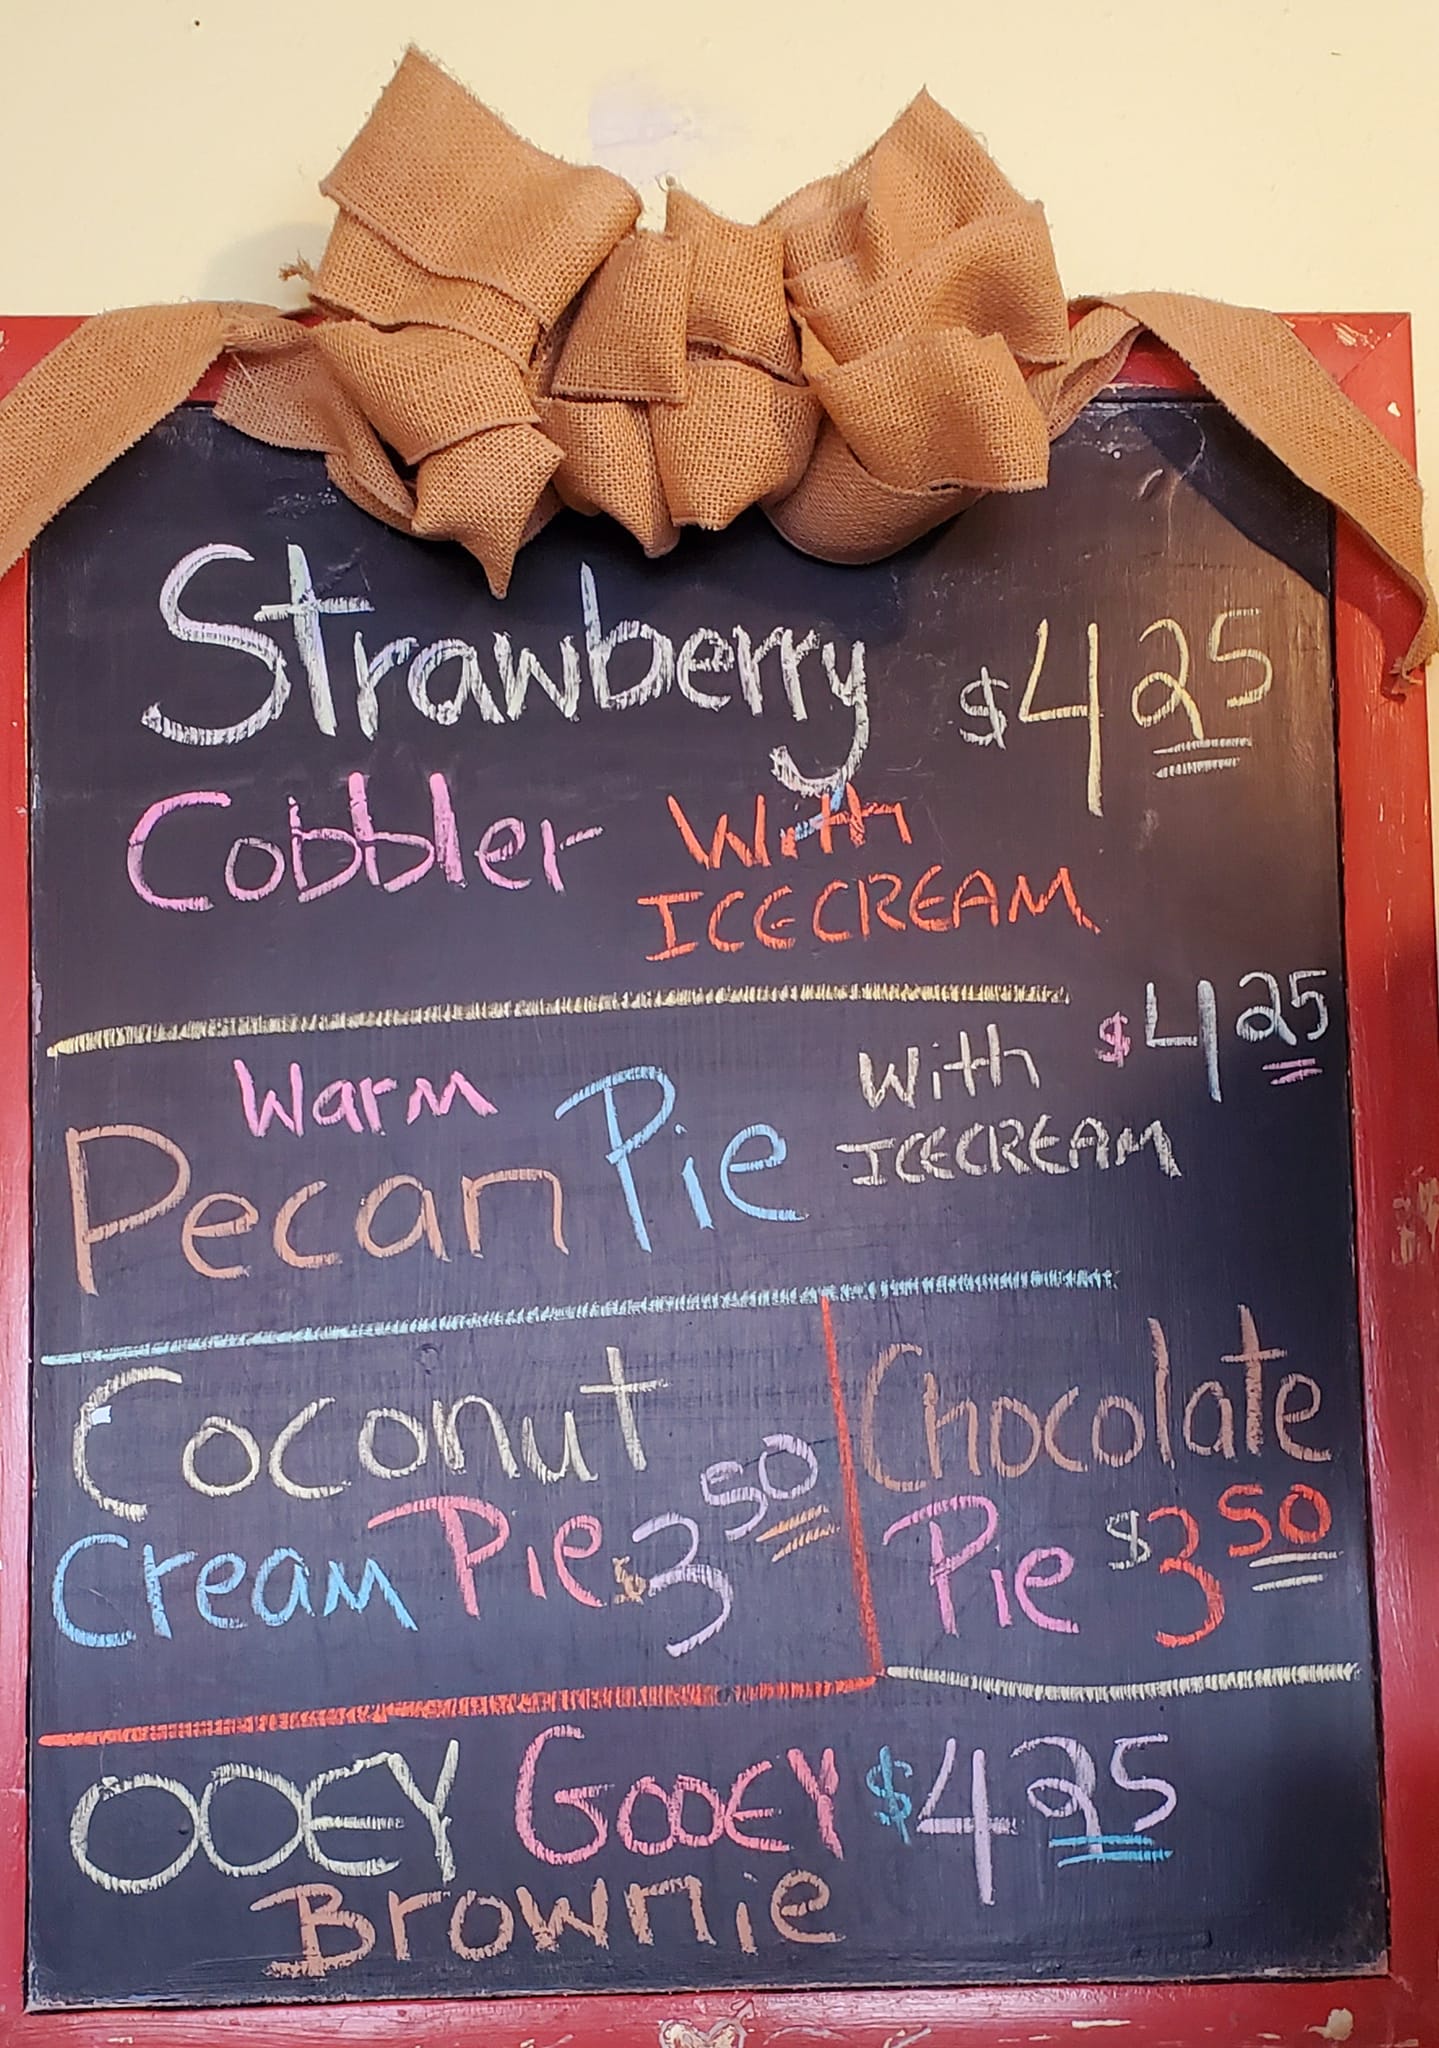 Strawberry $4 25
Cobbler With
ICECREAM
Warm With $4 25
Pecan Pie ICECREAM
Coconut
Cream Pie $3 50
Chocolate
Pie $3 50
OOEY GOOEY $4 25
Brownie